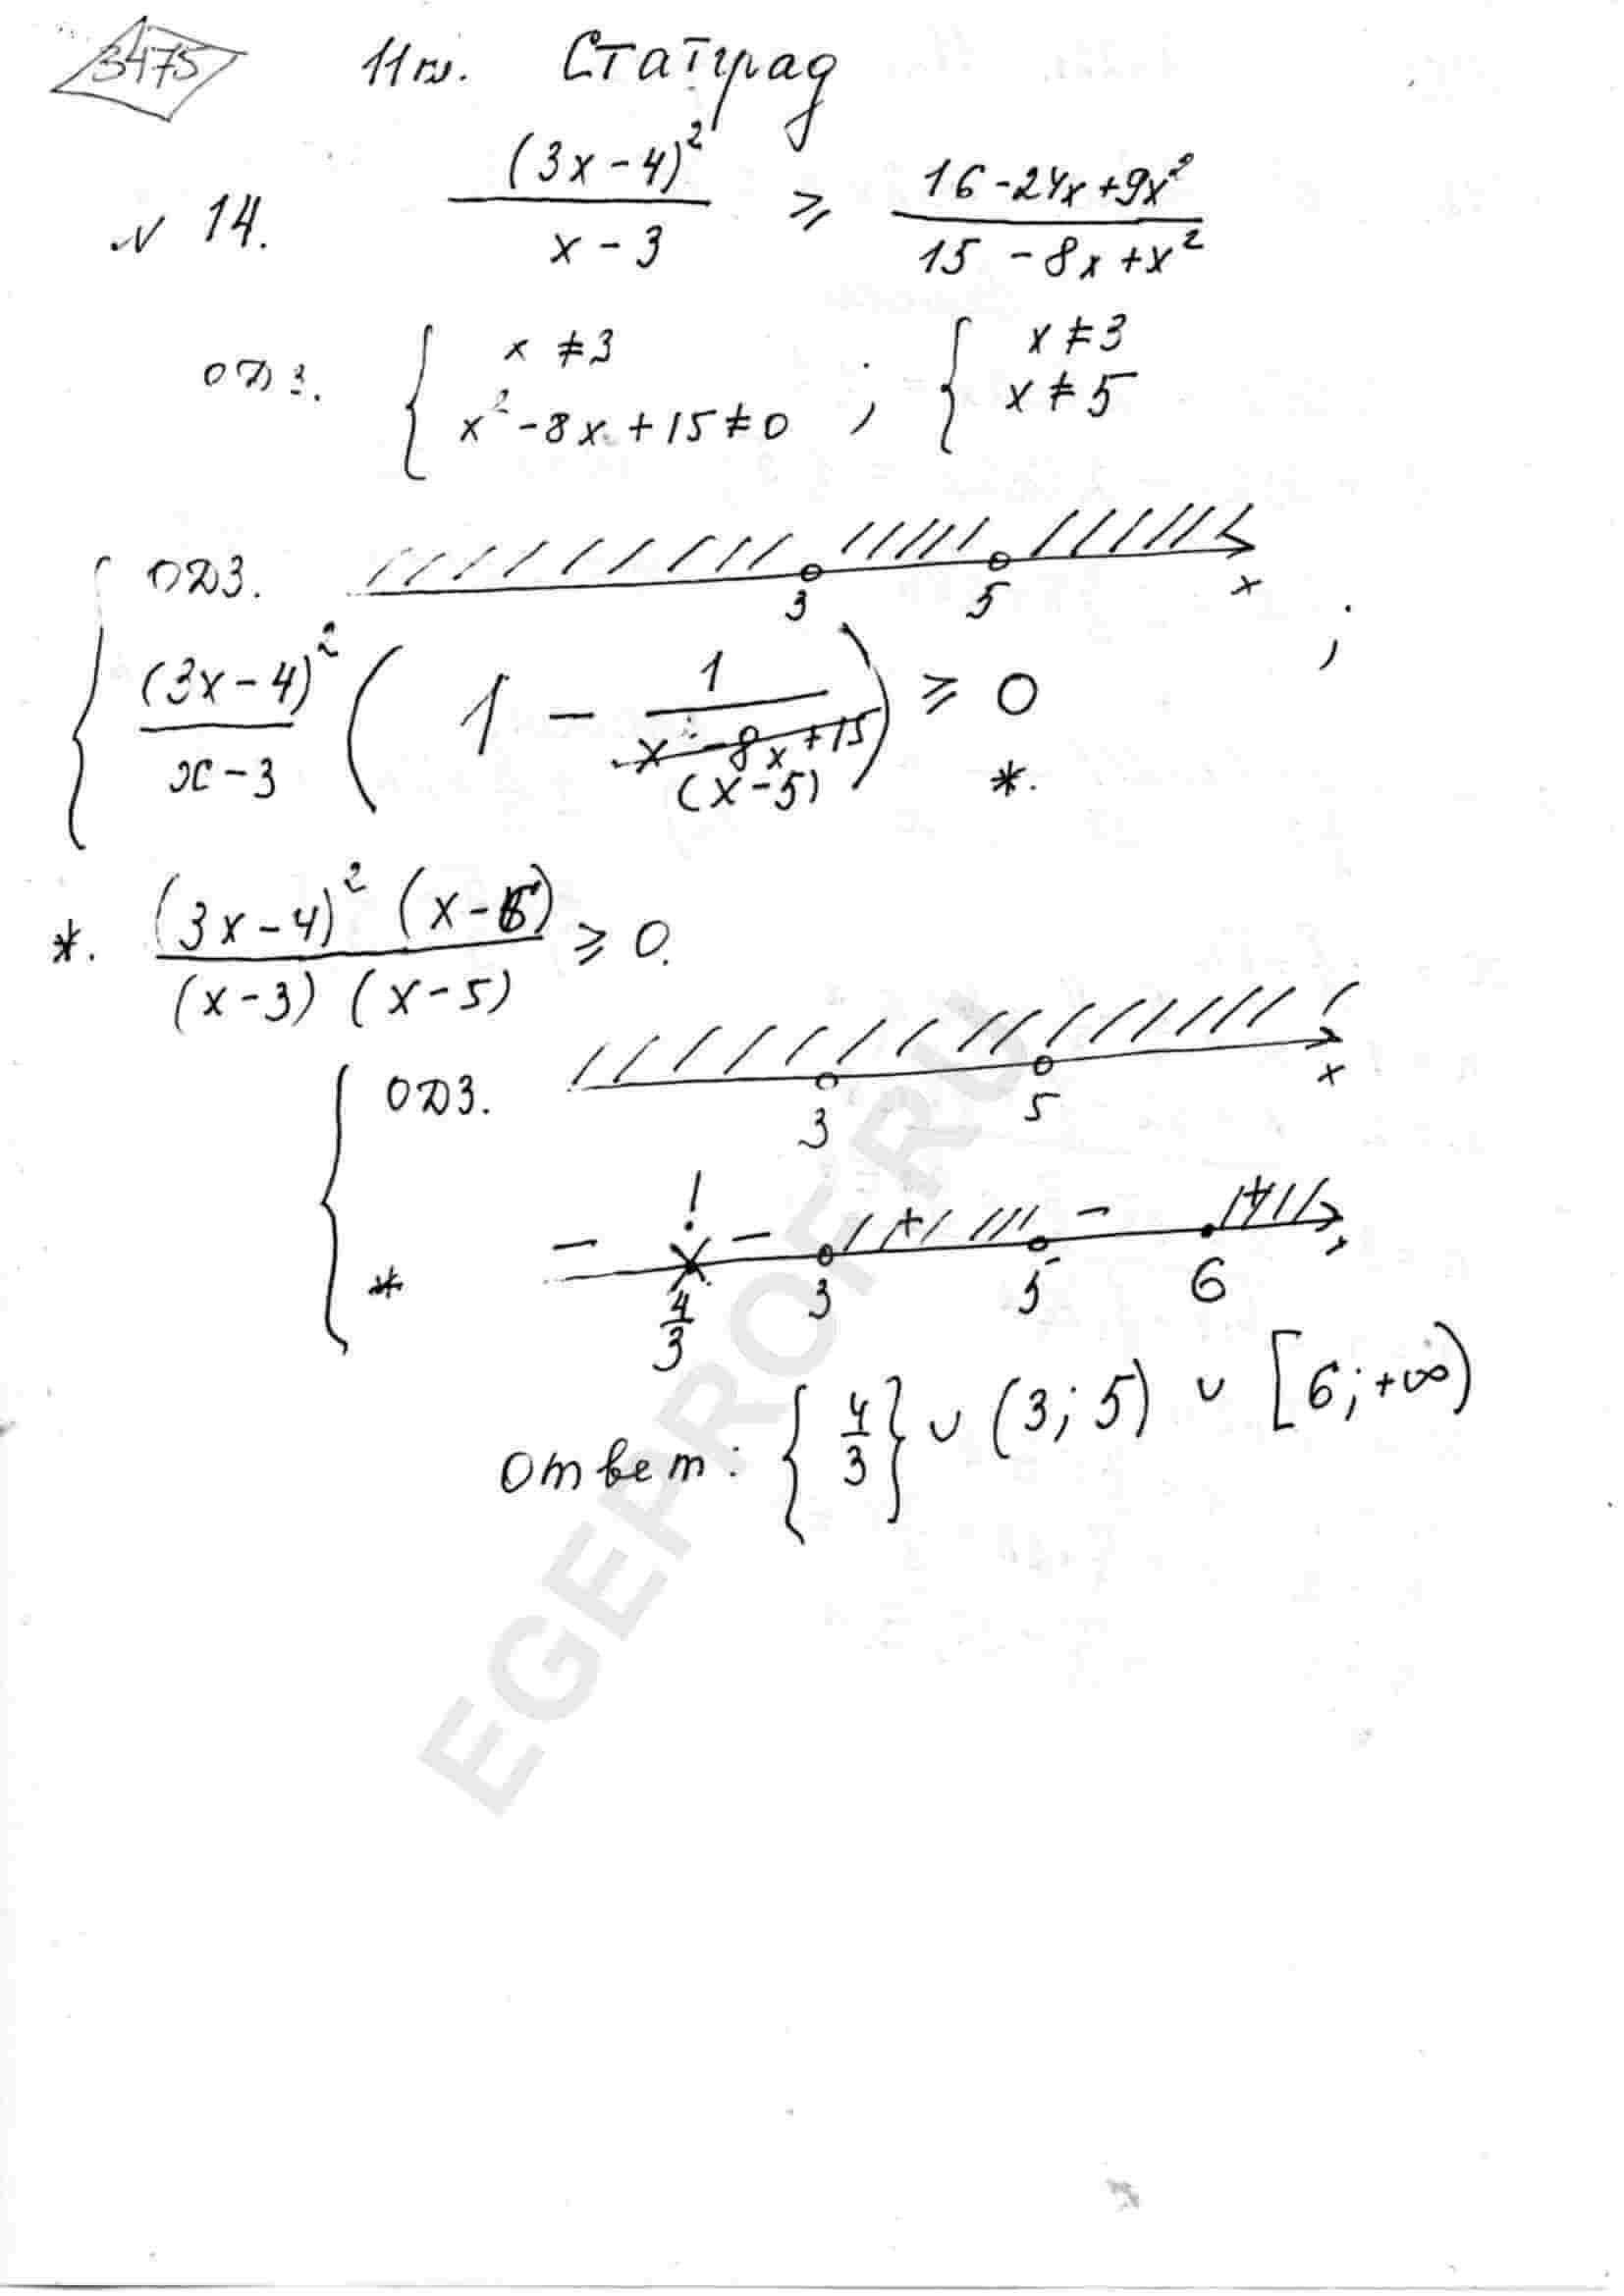 3475 11 кл. Статград
N 14. (3x-4)² / (x-3) ≥ (16-24x+9x²) / (15-8x+x²)
ОДЗ. { x ≠ 3 ; { x ≠ 3
x²-8x+15 ≠ 0 x ≠ 5
{ ОДЗ. 3 5 x ;
(3x-4)² / (x-3) ( 1 - 1 / (x-5) ) ≥ 0 *.
x²-8x+15
*. (3x-4)² (x-6) / (x-3) (x-5) ≥ 0.
{ ОДЗ. 3 5 x
* - ! - + - + x
4/3 3 5 6
Ответ: { 4/3 } ∪ (3; 5) ∪ [6; +∞)
EGEPROF.RU